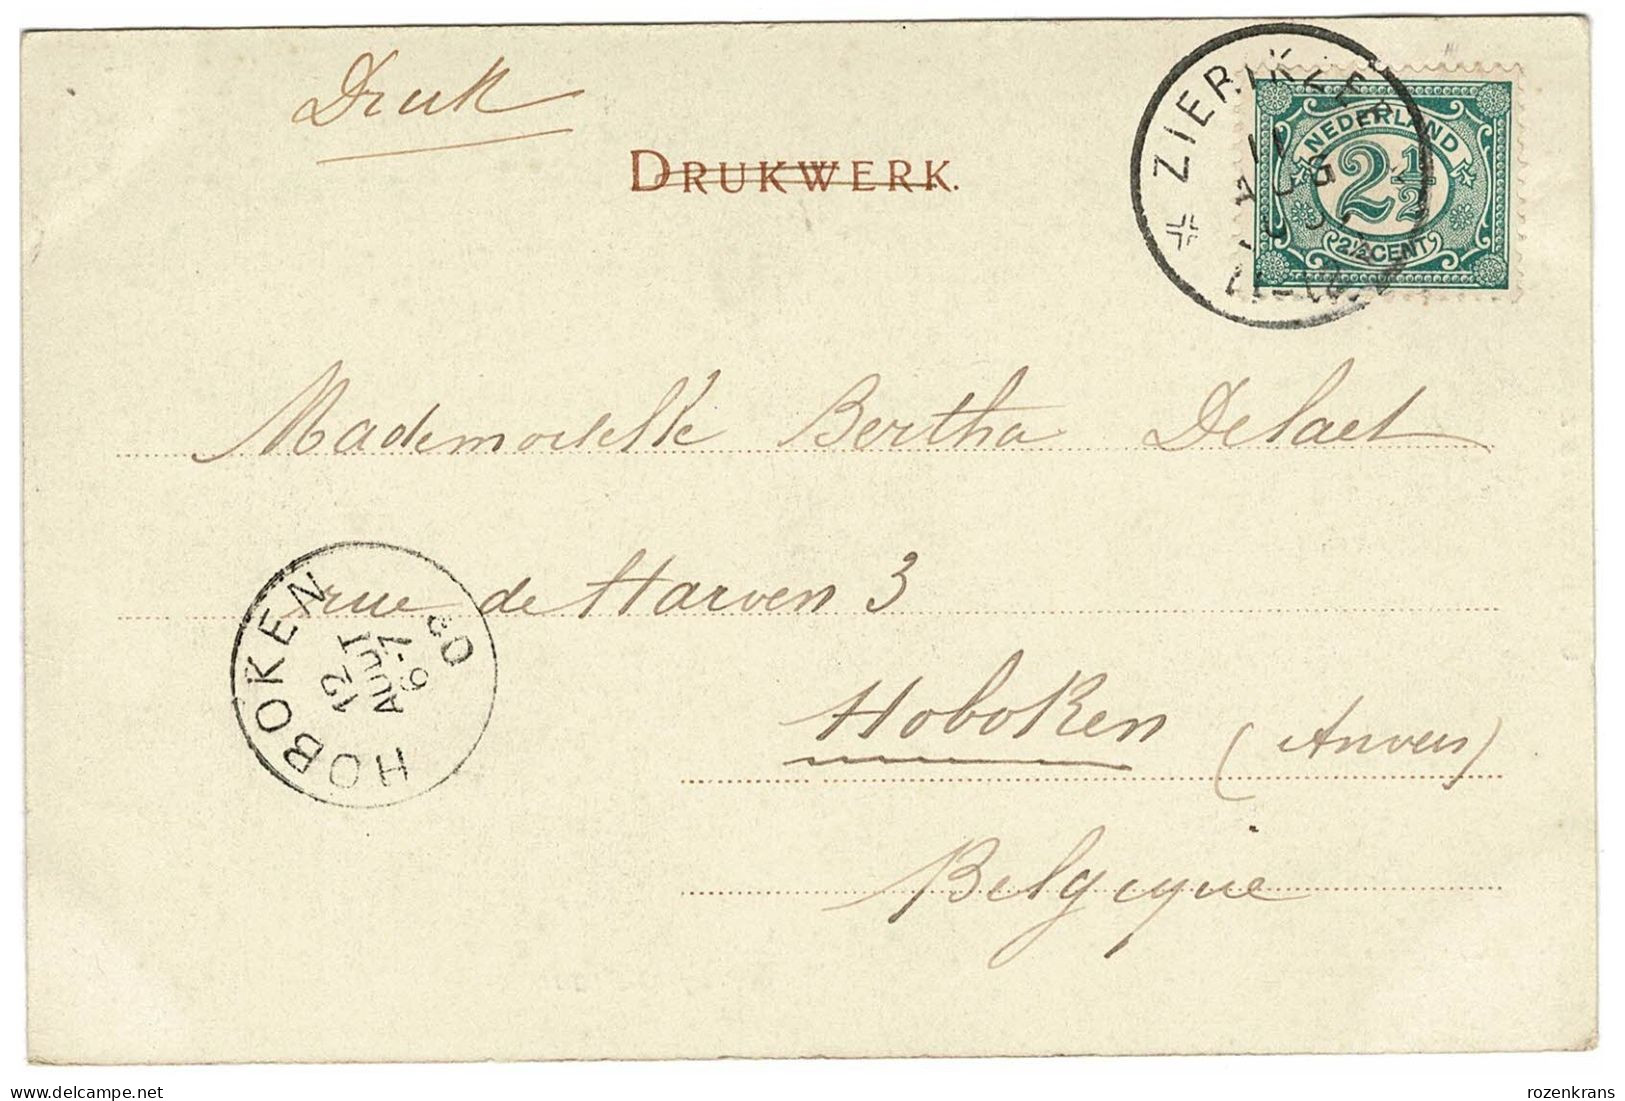 Druk
DRUKWERK.
ZIERIKZEE
11
AUG
11-12
NEDERLAND
2½
2½ CENT
Mademoiselle Bertha Delaet
rue de Harven 3
Hoboken (Anvers)
Belgique
HOBOKEN
12
AOUT
6-7
03
delcampe.net
rozenkrans